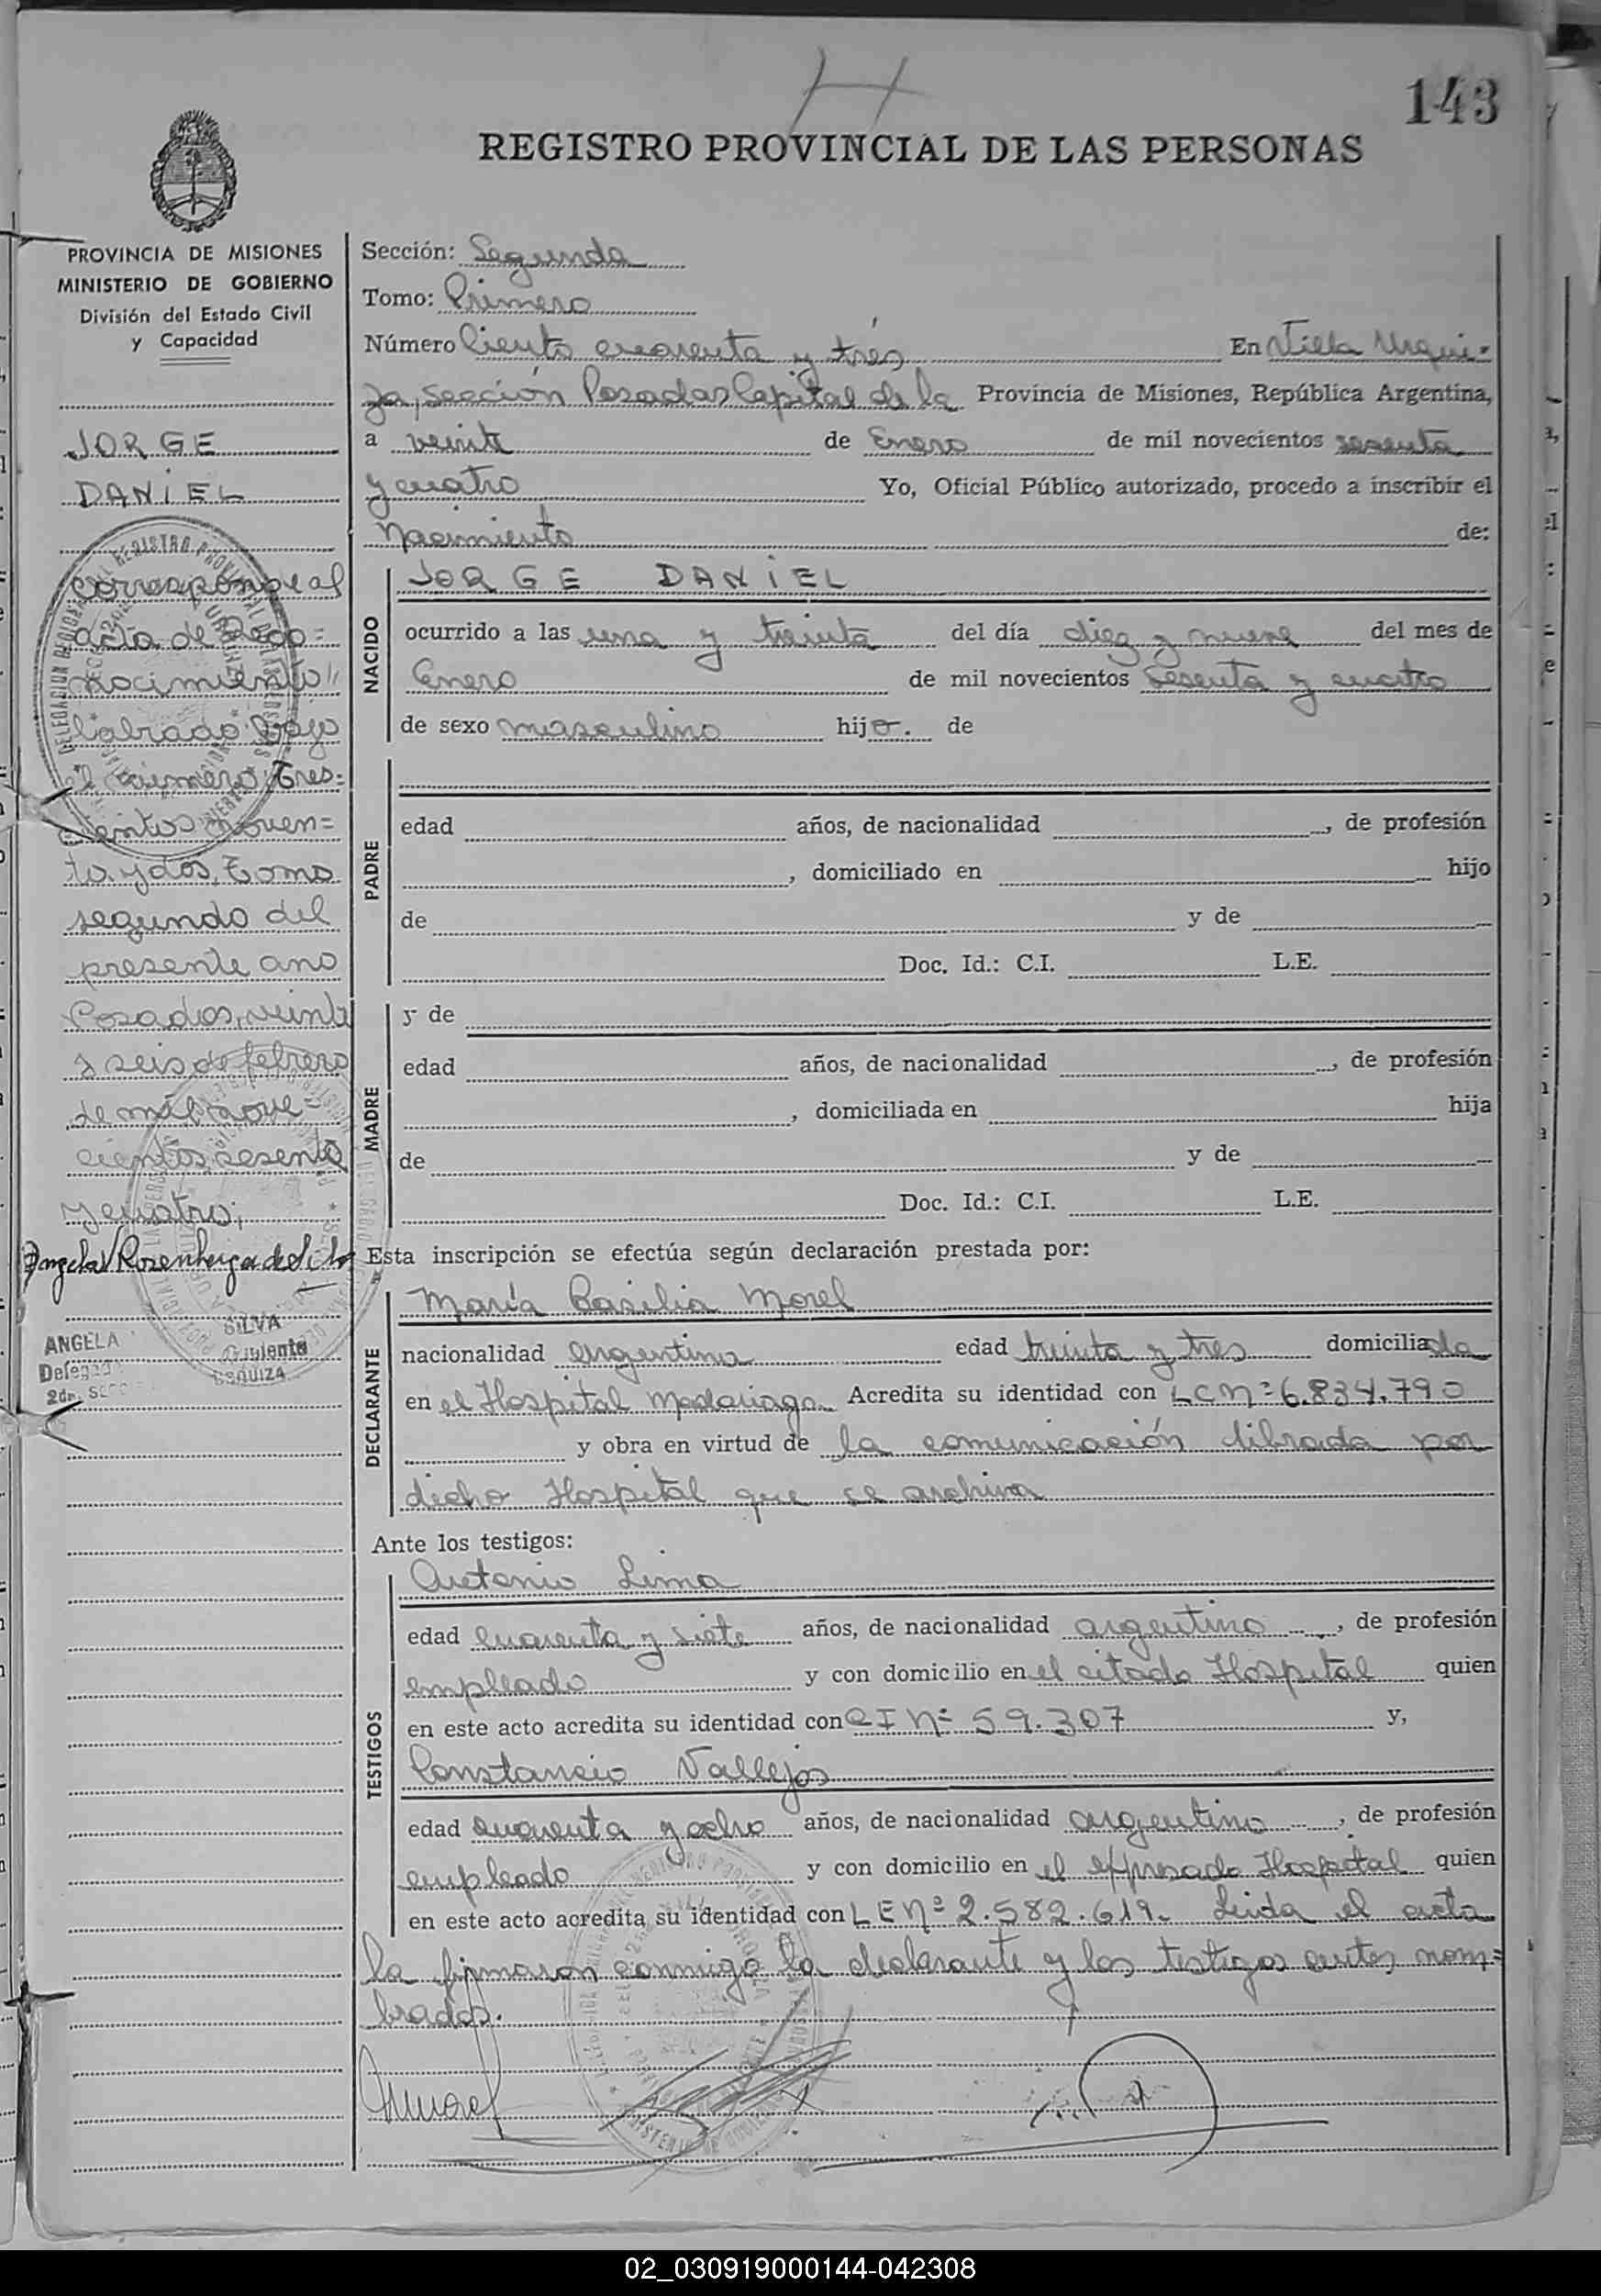 143
REGISTRO PROVINCIAL DE LAS PERSONAS
PROVINCIA DE MISIONES
MINISTERIO DE GOBIERNO
División del Estado Civil
y Capacidad
JORGE
DANIEL
corresponde al
acta de Reco=
nocimiento
labrado bajo
el número Tres=
cientos noven=
ta y dos, Tomo
segundo del
presente año
Posadas, veinti
y seis de febrero
de mil nove=
cientos sesenta
y cuatro;
Angela Rosenberga de Silva
ANGELA SILVA
Delegada Suplente
2da. URQUIZA
Sección: Segunda
Tomo: Primero
Número Ciento cuarenta y tres En Villa Urqui-
za, Sección Posadas Capital de la Provincia de Misiones, República Argentina,
a veinte de Enero de mil novecientos sesenta
y cuatro Yo, Oficial Público autorizado, procedo a inscribir el
Nacimiento de:
NACIDO
JORGE DANIEL
ocurrido a las una y treinta del día diez y nueve del mes de
Enero de mil novecientos Sesenta y cuatro
de sexo masculino hijo. de
PADRE
edad años, de nacionalidad , de profesión
, domiciliado en hijo
de y de
Doc. Id.: C.I. L.E.
MADRE
y de
edad años, de nacionalidad , de profesión
, domiciliada en hija
de y de
Doc. Id.: C.I. L.E.
Esta inscripción se efectúa según declaración prestada por:
DECLARANTE
María Basilia Morel
nacionalidad argentina edad treinta y tres domiciliada
en el Hospital Madariaga Acredita su identidad con LC Nº 6.834.790
y obra en virtud de la comunicación librada por
dicho Hospital que se archiva
Ante los testigos:
TESTIGOS
Antonio Lima
edad cuarenta y siete años, de nacionalidad argentino , de profesión
empleado y con domicilio en el citado Hospital quien
en este acto acredita su identidad con CI Nº 59.307 y,
Constancio Vallejos
edad cuarenta y ocho años, de nacionalidad argentino , de profesión
empleado y con domicilio en el expresado Hospital quien
en este acto acredita su identidad con LE Nº 2.582.619. Leida el acta
la firmaron conmigo la declarante y los testigos antes nom=
brados.
Morel
02_030919000144-042308